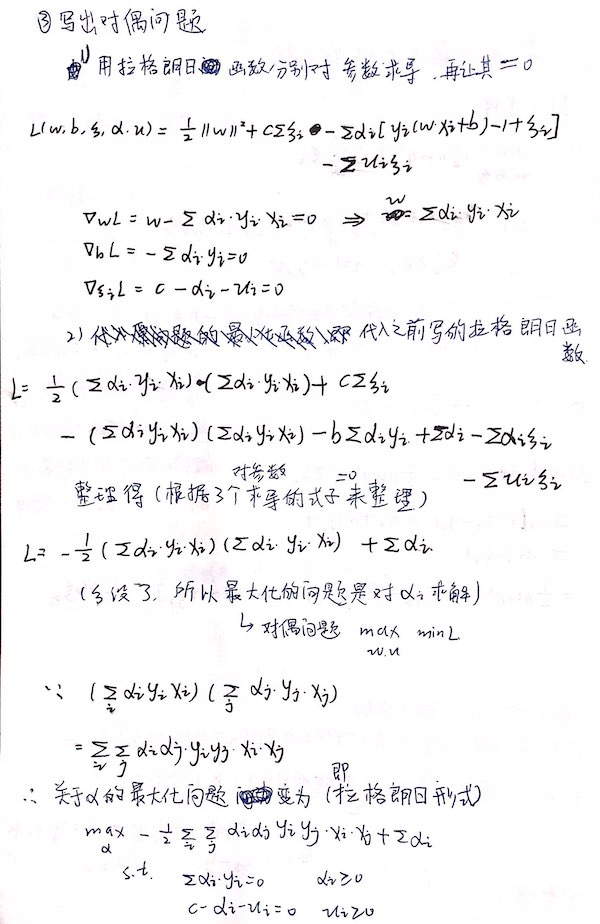 ③写出对偶问题
1) 用拉格朗日函数分别对参数求导,再让其=0
L(w,b,ξ,α,u) = 1/2 ||w||² + CΣξi - Σαi[yi(w·xi+b)-1+ξi]
- Σuiξi
∇wL = w - Σαi·yi·xi = 0 ⇒ w = Σαi·yi·xi
∇bL = -Σαi·yi = 0
∇ξiL = C - αi - ui = 0
2) 代入之前写的拉格朗日函
数
L = 1/2 (Σαi·yi·xi)·(Σαi·yi·xi) + CΣξi
- (Σαiyixi)(Σαiyixi) - bΣαiyi + Σαi - Σαiξi
- Σuiξi
整理得(根据3个对参数求导的式子=0来整理)
L = -1/2 (Σαi·yi·xi)(Σαi·yi·xi) + Σαi
(ξ没了,所以最大化的问题是对αi求解)
↳ 对偶问题 max min L
w.u
∵ (Σi αiyixi)(Σj αj·yj·xj)
= Σi Σj αiαj·yiyj·xi·xj
∴ 关于α的最大化问题变为(即拉格朗日形式)
max α - 1/2 Σi Σj αiαj yiyj·xi·xj + Σαi
s.t. Σαi·yi=0 αi≥0
C-αi-ui=0 ui≥0